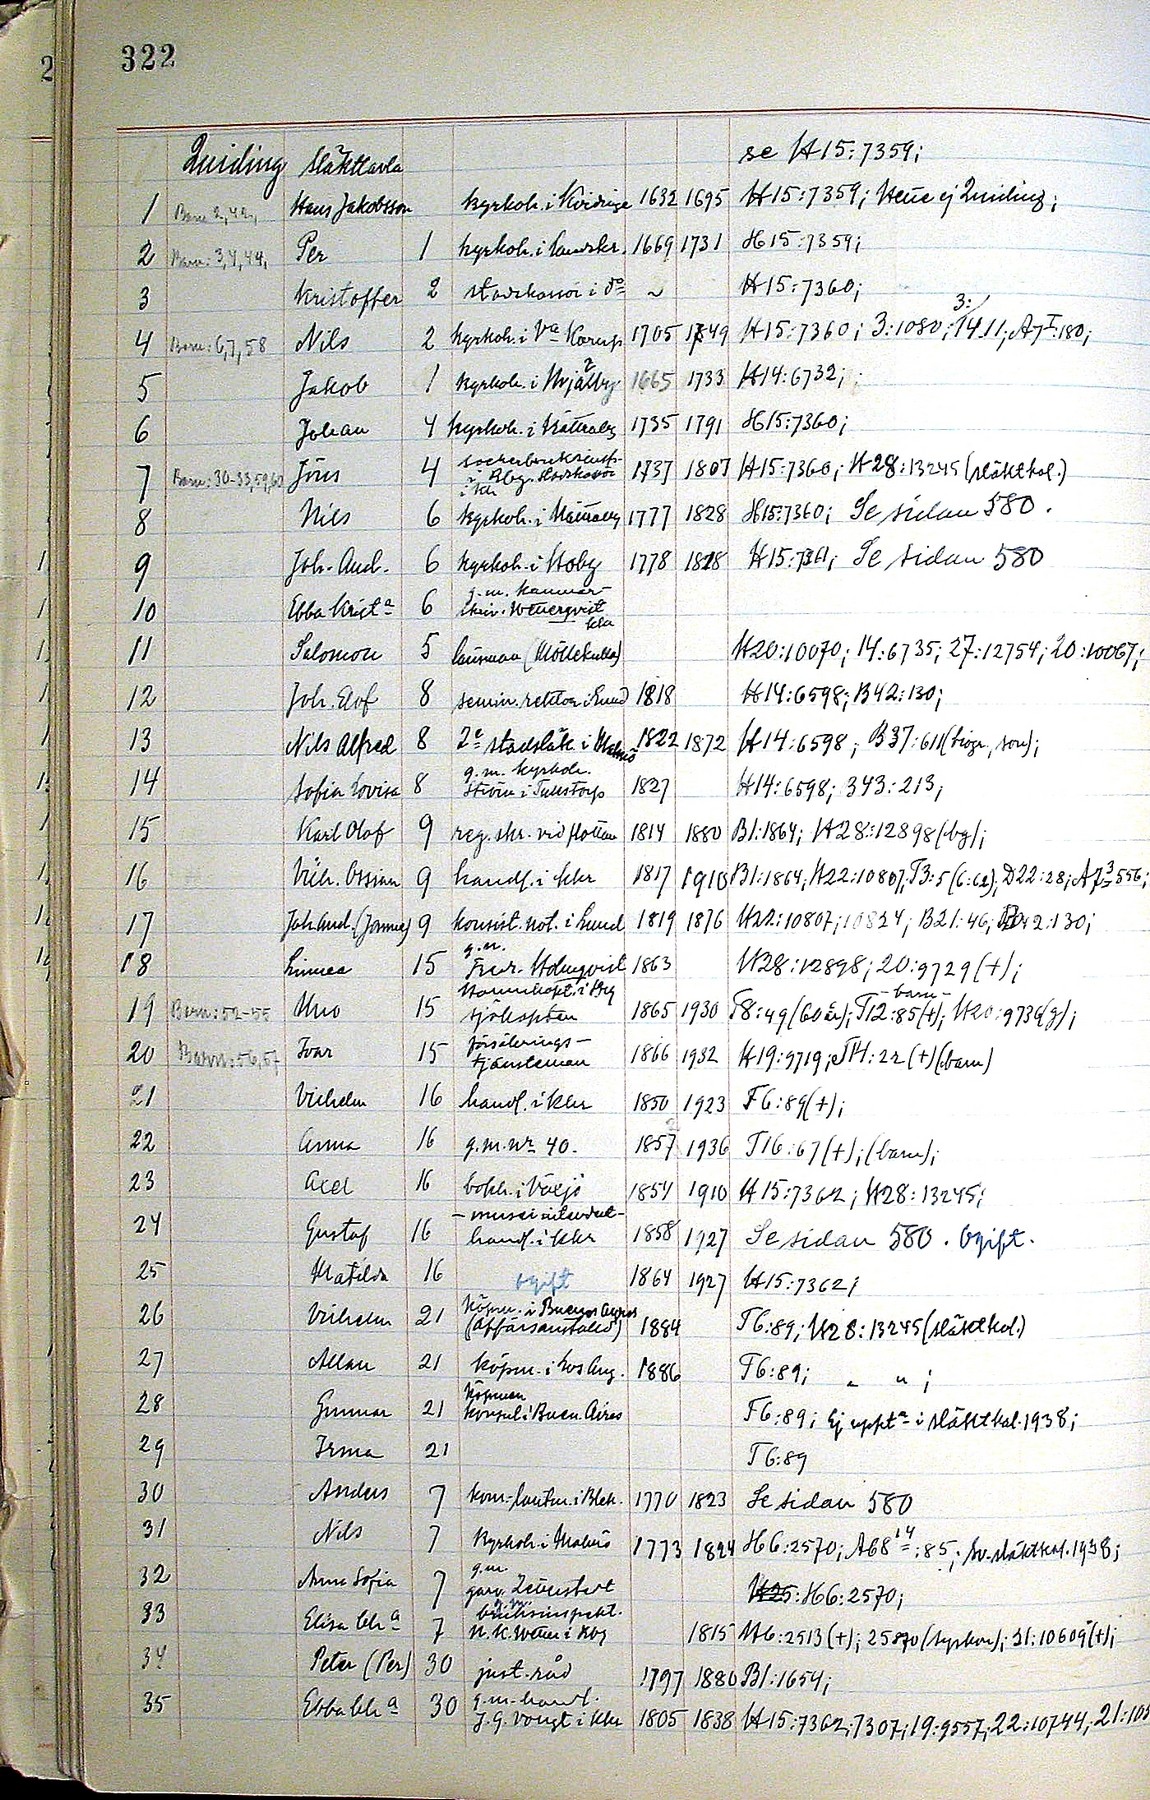 2
322
Quiding släkttavla se H15:7359;
1 Barn 2,42, Hans Jakobsson kyrkoh. i Kvidinge 1632 1695 H15:7359; Hette ej Quiding;
2 Barn: 3,4,44, Per 1 kyrkoh. i Landskr. 1669 1731 H15:7359;
3 Kristoffer 2 stadskassör i do ~ H15:7360;
3:
4 Barn: 6,7,58 Nils 2 kyrkoh. i Va Karup 1705 1749 H15:7360; 3:1080; 1411; A7I:180;
5 Jakob 1 kyrkoh. i Mjälby 1665 1733 H14:6732;
6 Johan 4 kyrkoh. i Nättraby 1735 1791 H15:7360;
7 Barn: 30-33,59,60 Jöns 4 i Kbg. Stadskassör i Kkr 1737 1807 H15:7360; H28:13245 (släktkal.)
8 Nils 6 kyrkoh. i Nättraby 1777 1828 H15:7360; Se sidan 580.
9 Joh. And. 6 kyrkoh. i Hoby 1778 1828 H15:7361; Se sidan 580
10 Ebba Krista 6 g.m. kammar- skriv. Wetterqvist Kkr
11 Salomon 5 länsman (Möllekulla) H20:10070; 14:6735; 27:12754; 20:10067;
12 Joh. Elof 8 semin. rektor i Lund 1818 H14:6598; B42:130;
13 Nils Alfred 8 2e stadsläk. i Malmö 1822 1872 H14:6598; B37:611 (biogr., son);
14 Sofia Lovisa 8 g.m. kyrkoh. Ström i Tullstorp 1827 H14:6598; 343:213;
15 Karl Olof 9 reg. skr. vid flottan 1814 1880 B1:1864; H28:12898 (bg);
16 Vilh. Ossian 9 handl. i Kkr 1817 1910 B1:1864; H22:10807; T3:5 (6:62); D22:28; A73:556;
17 Joh. And. (Jonne) 9 konsist. not. i Lund 1819 1876 H22:10807; 10824; B21:46; B42:130;
18 Linnea 15 g.m. Fredr. Holmqvist 1863 H28:12898; 20:9729 (+);
19 Barn: 52-55 Uno 15 Hamnkapt. i Kbg sjökapten 1865 1930 T8:49 (60 år); T12:85 (+); -barn- H20:9739 (g);
20 Barn: 56,57 Ivar 15 försäkrings- tjänsteman 1866 1932 H19:9719; T14:22 (+) (barn)
21 Vilhelm 16 handl. i Kkr 1850 1923 T6:89 (+);
22 Anna 16 g.m. nr 40. 1857 1936 T16:67 (+); (barn);
23 Axel 16 bokh. i Växjö 1854 1910 H15:7362; H28:13245;
24 Gustaf 16 - musei intendent - handl. i Kkr 1858 1927 Se sidan 580. Ogift.
25 Matilda 16 ogift 1864 1927 H15:7362;
26 Vilhelm 21 Köpm. i Buenos Ayres (Affärsanställd) 1884 T6:89; H28:13245 (släktkal.)
27 Allan 21 köpm. i Los Ang. 1886 T6:89; " " ;
28 Gunnar 21 Köpman konsul i Buen. Aires T6:89; Ej uppta i släktkal. 1938;
29 Irma 21 T6:89
30 Anders 7 kom.-lantm. i Blek. 1770 1823 Se sidan 580
31 Nils 7 Kyrkoh. i Malmö 1773 1824 H6:2570; A6814:85; Sv. släktkal. 1938;
32 Anna Sofia 7 g.m. garv. Zetterstedt H25: H6:2570;
33 Elisa Chra 7 g.m. bruksinspekt. N.K. Wetter i Kbg 1815 H6:2513 (+); 25870 (syskon); 31:10609 (+);
34 Peter (Per) 30 just. råd 1797 1880 B1:1654;
35 Ebba Chra 30 g.m. handl. J.G. Voigt i Kkr 1805 1838 H15:7362; 7307; 19:9557; 22:10744; 21:105